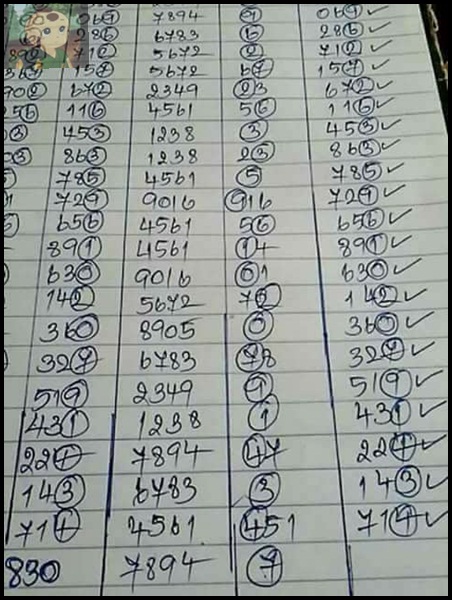 069 7894 9 069 ✓
286 6783 6 286 ✓
892 712 5672 2 712 ✓
367 157 5672 67 157 ✓
902 672 2349 23 672 ✓
256 116 4561 56 116 ✓
453 1238 3 453 ✓
863 1238 23 863 ✓
785 4561 5 785 ✓
729 9016 916 729 ✓
656 4561 56 656 ✓
891 4561 14 891 ✓
630 9016 01 630 ✓
142 5672 142 ✓
360 8905 0 360 ✓
327 6783 78 327 ✓
519 2349 9 519 ✓
431 1238 1 431 ✓
224 7894 47 224 ✓
143 6783 3 143 ✓
714 4561 451 714 ✓
830 7894 7